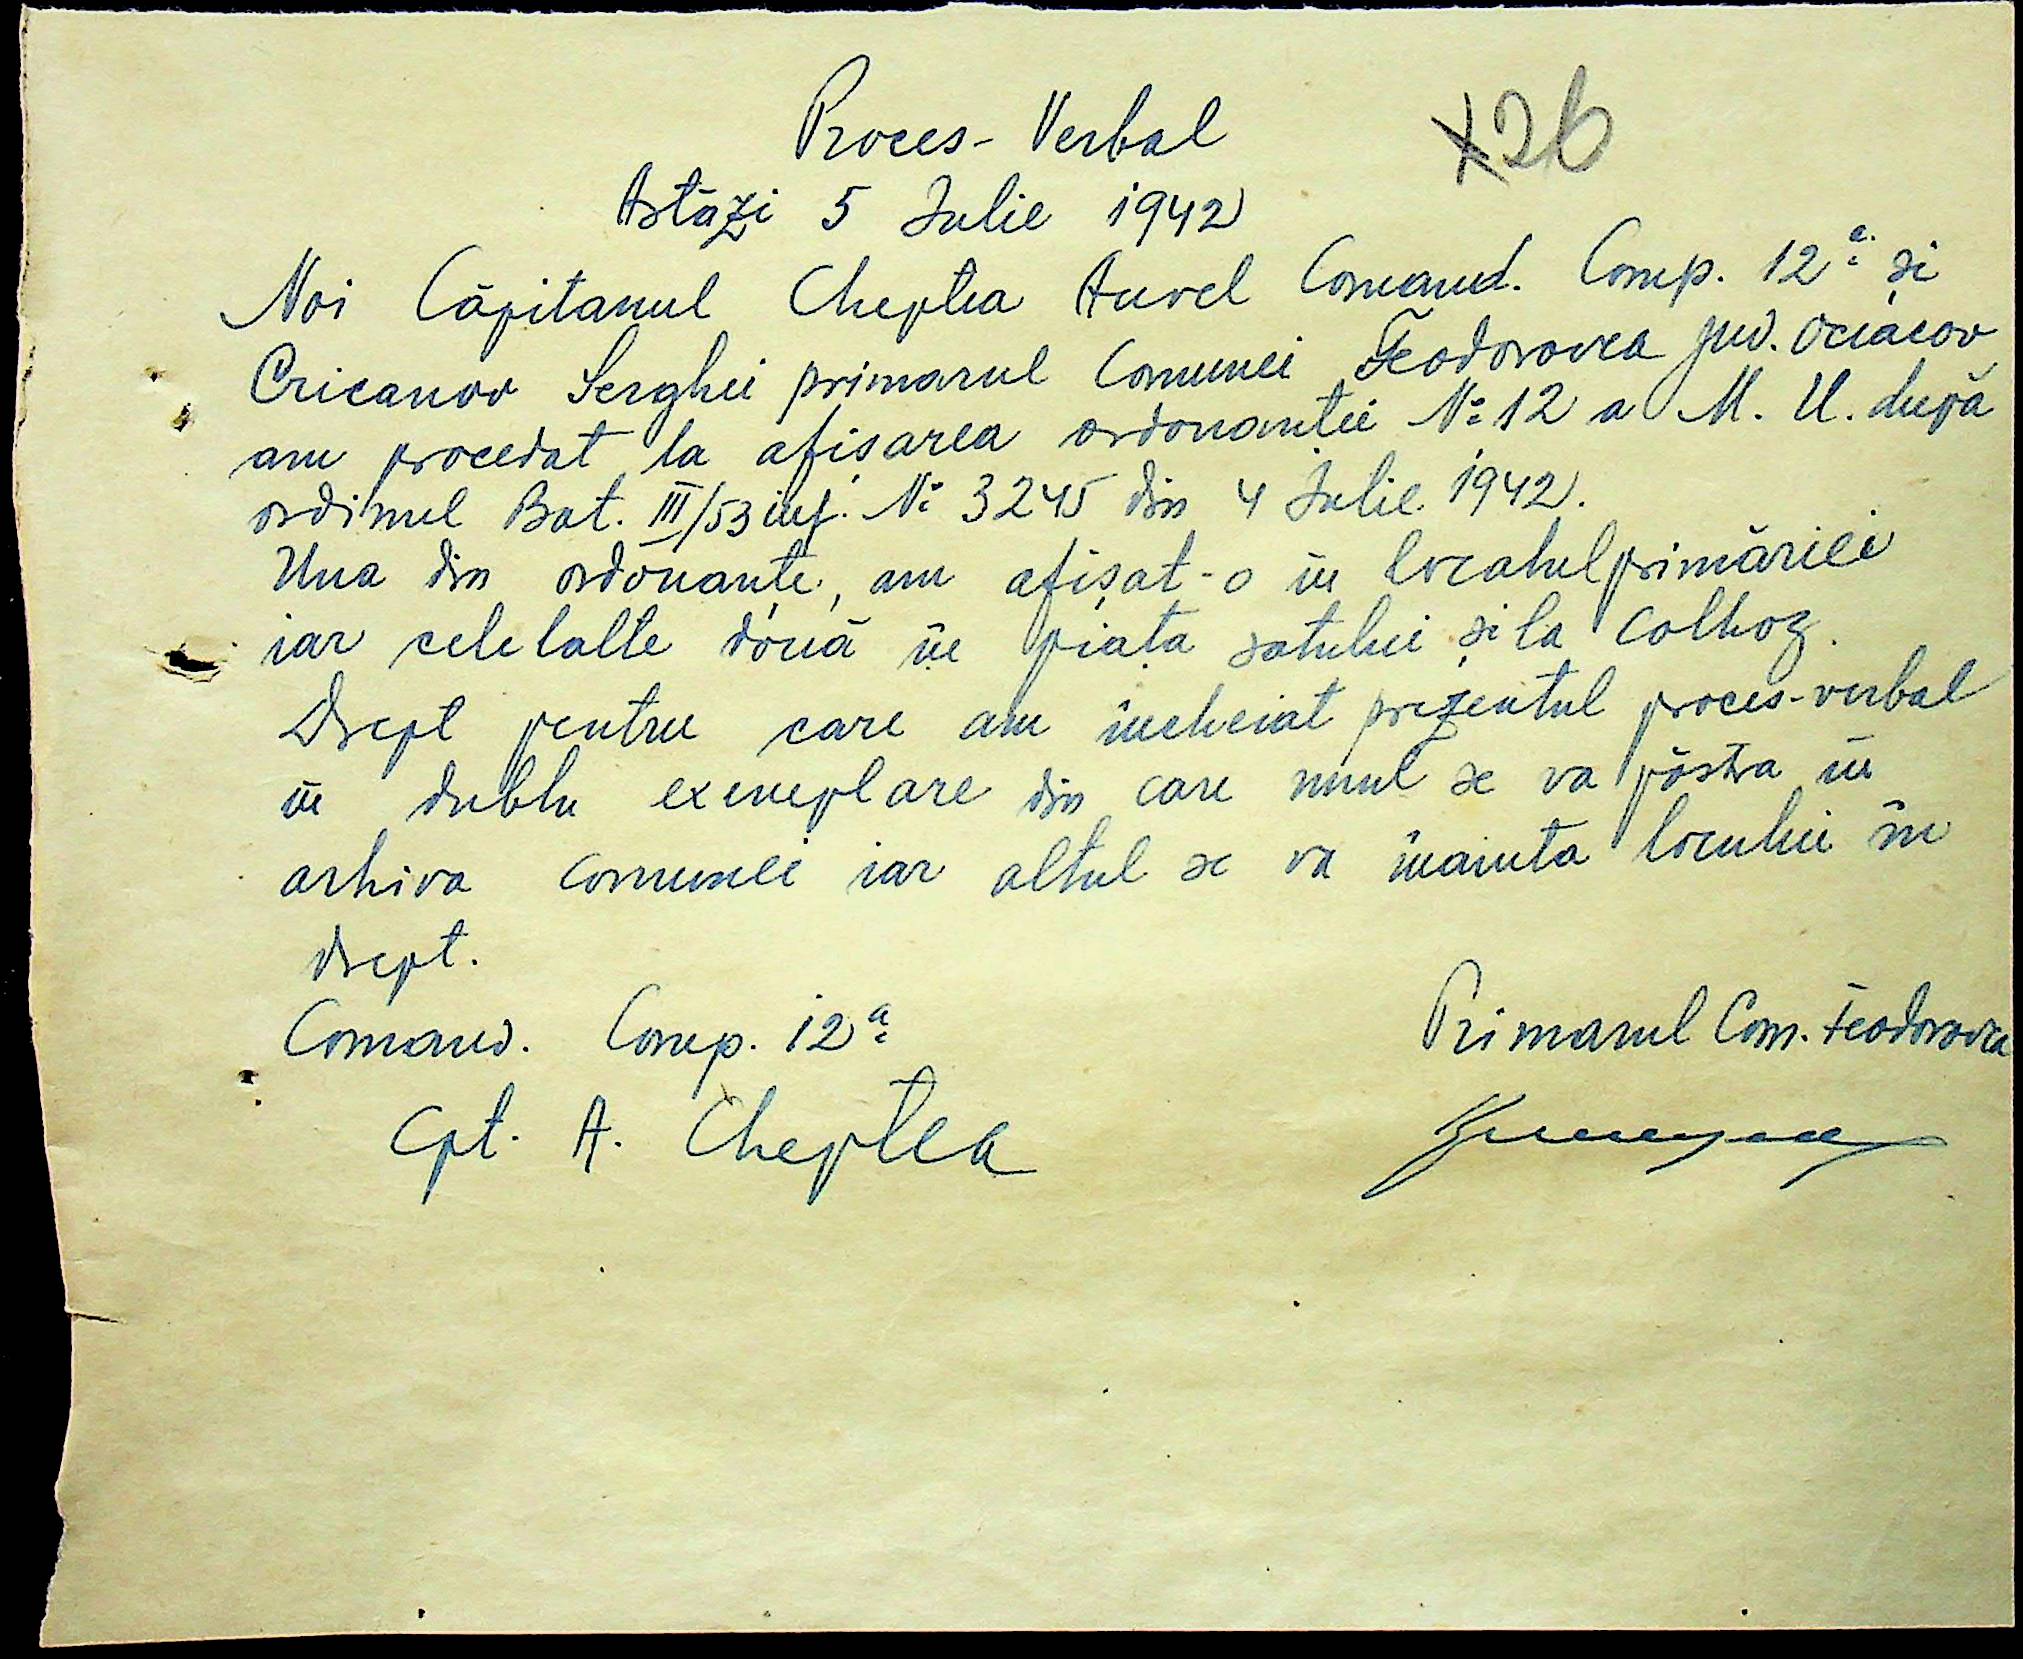 Proces-Verbal
X26
Astăzi 5 Iulie 1942
Noi Căpitanul Cheptea Aurel Comand. Comp. 12a și
Cricanov Serghei primarul Comunei Feodorovca jud. Ociacov
am procedat la afișarea ordonanței No 12 a M. U. după
ordinul Bat. III/53 inf. No 3245 din 4 Iulie 1942.
Una din ordonanțe, am afișat-o în localul primăriei
iar celelalte două în piața satului și la Colhoz.
Drept pentru care am încheiat prezentul proces-verbal
în dublu exemplare din care unul se va păstra în
arhiva comunei iar altul se va înainta locului în
drept.
Comand. Comp. 12a
Primarul Com. Feodorovca
Cpt. A. Cheptea